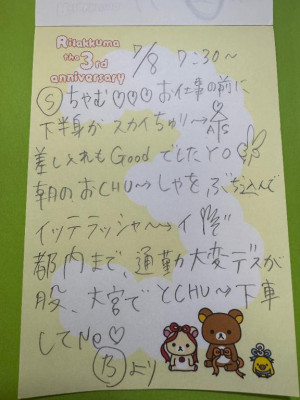 Rilakkuma
the 3rd
anniversary
7/8 7:30〜
Ⓢちゃむ♡♡♡お仕事の前に
下半身が スカイちゅり→
差し入れもGoodでしたYO
朝のおCHU〜しゃをぶち込んで
イッテラッシャ〜〜イ
都内まで、通勤大変デスが
股、大宮でとCHU〜下車
してNe♡
より